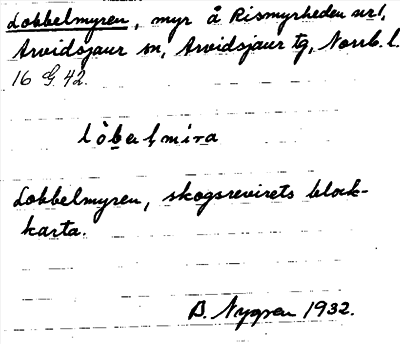 Lobbelmyren, myr å Rismyrheden nr1,
Arvidsjaur sn, Arvidsjaur tg, Norrb. l.
16 G 42.
Lobbelmyren, skogsrevirets block-
karta.
B. Nygren 1932.